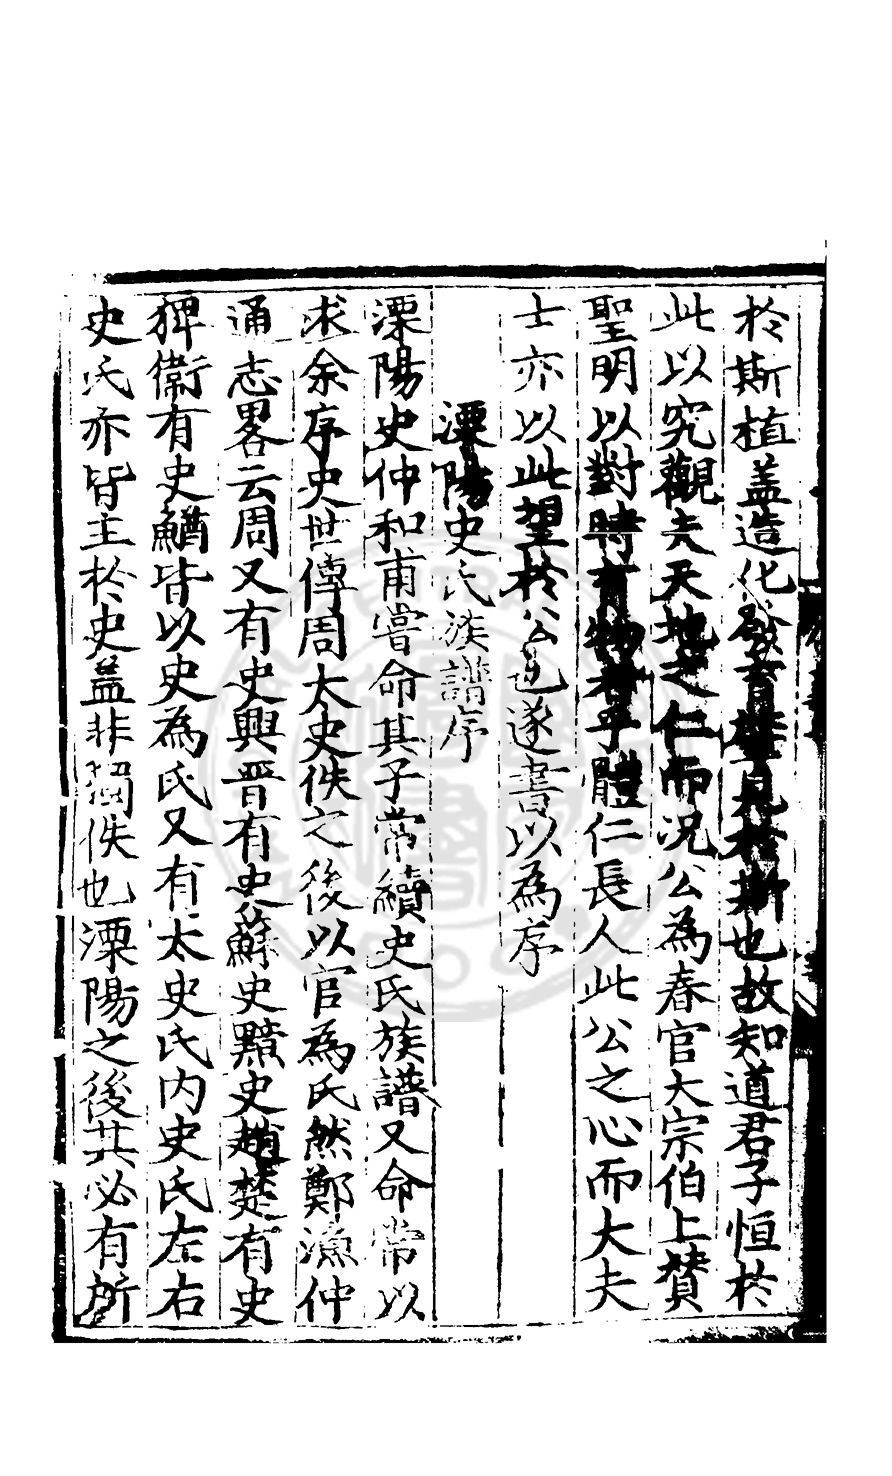 於斯植盖造化發育莫見於斯也故知道君子恒於
此以究觀夫天地之仁而况公為春官大宗伯上賛
聖明以對時育物者乎體仁長人此公之心而大夫
士亦以此望於公也遂書以為序
溧陽史氏族譜序
溧陽史仲和甫嘗命其子常續史氏族譜又命常以
求余序史世傳周太史佚之後以官為氏然鄭漁仲
通志畧云周又有史興晋有史蘇史黯史趙楚有史
猈衛有史鰌皆以史為氏又有太史氏内史氏左右
史氏亦皆主於史盖非獨佚也溧陽之後其必有所